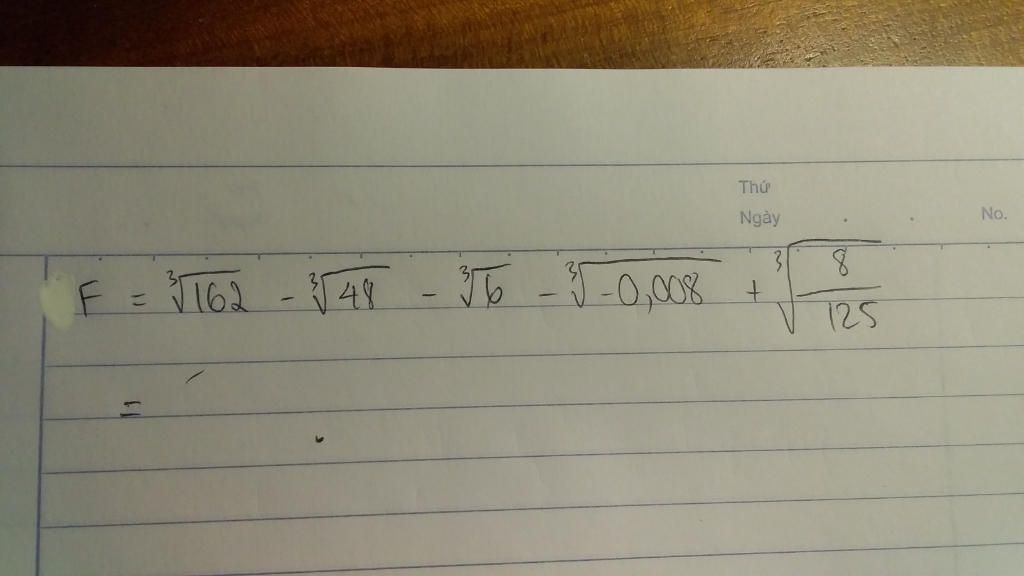 Thứ
Ngày . . No.
F = ∛162 - ∛48 - ∛6 - ∛-0,008 + ∛(8/125)
=